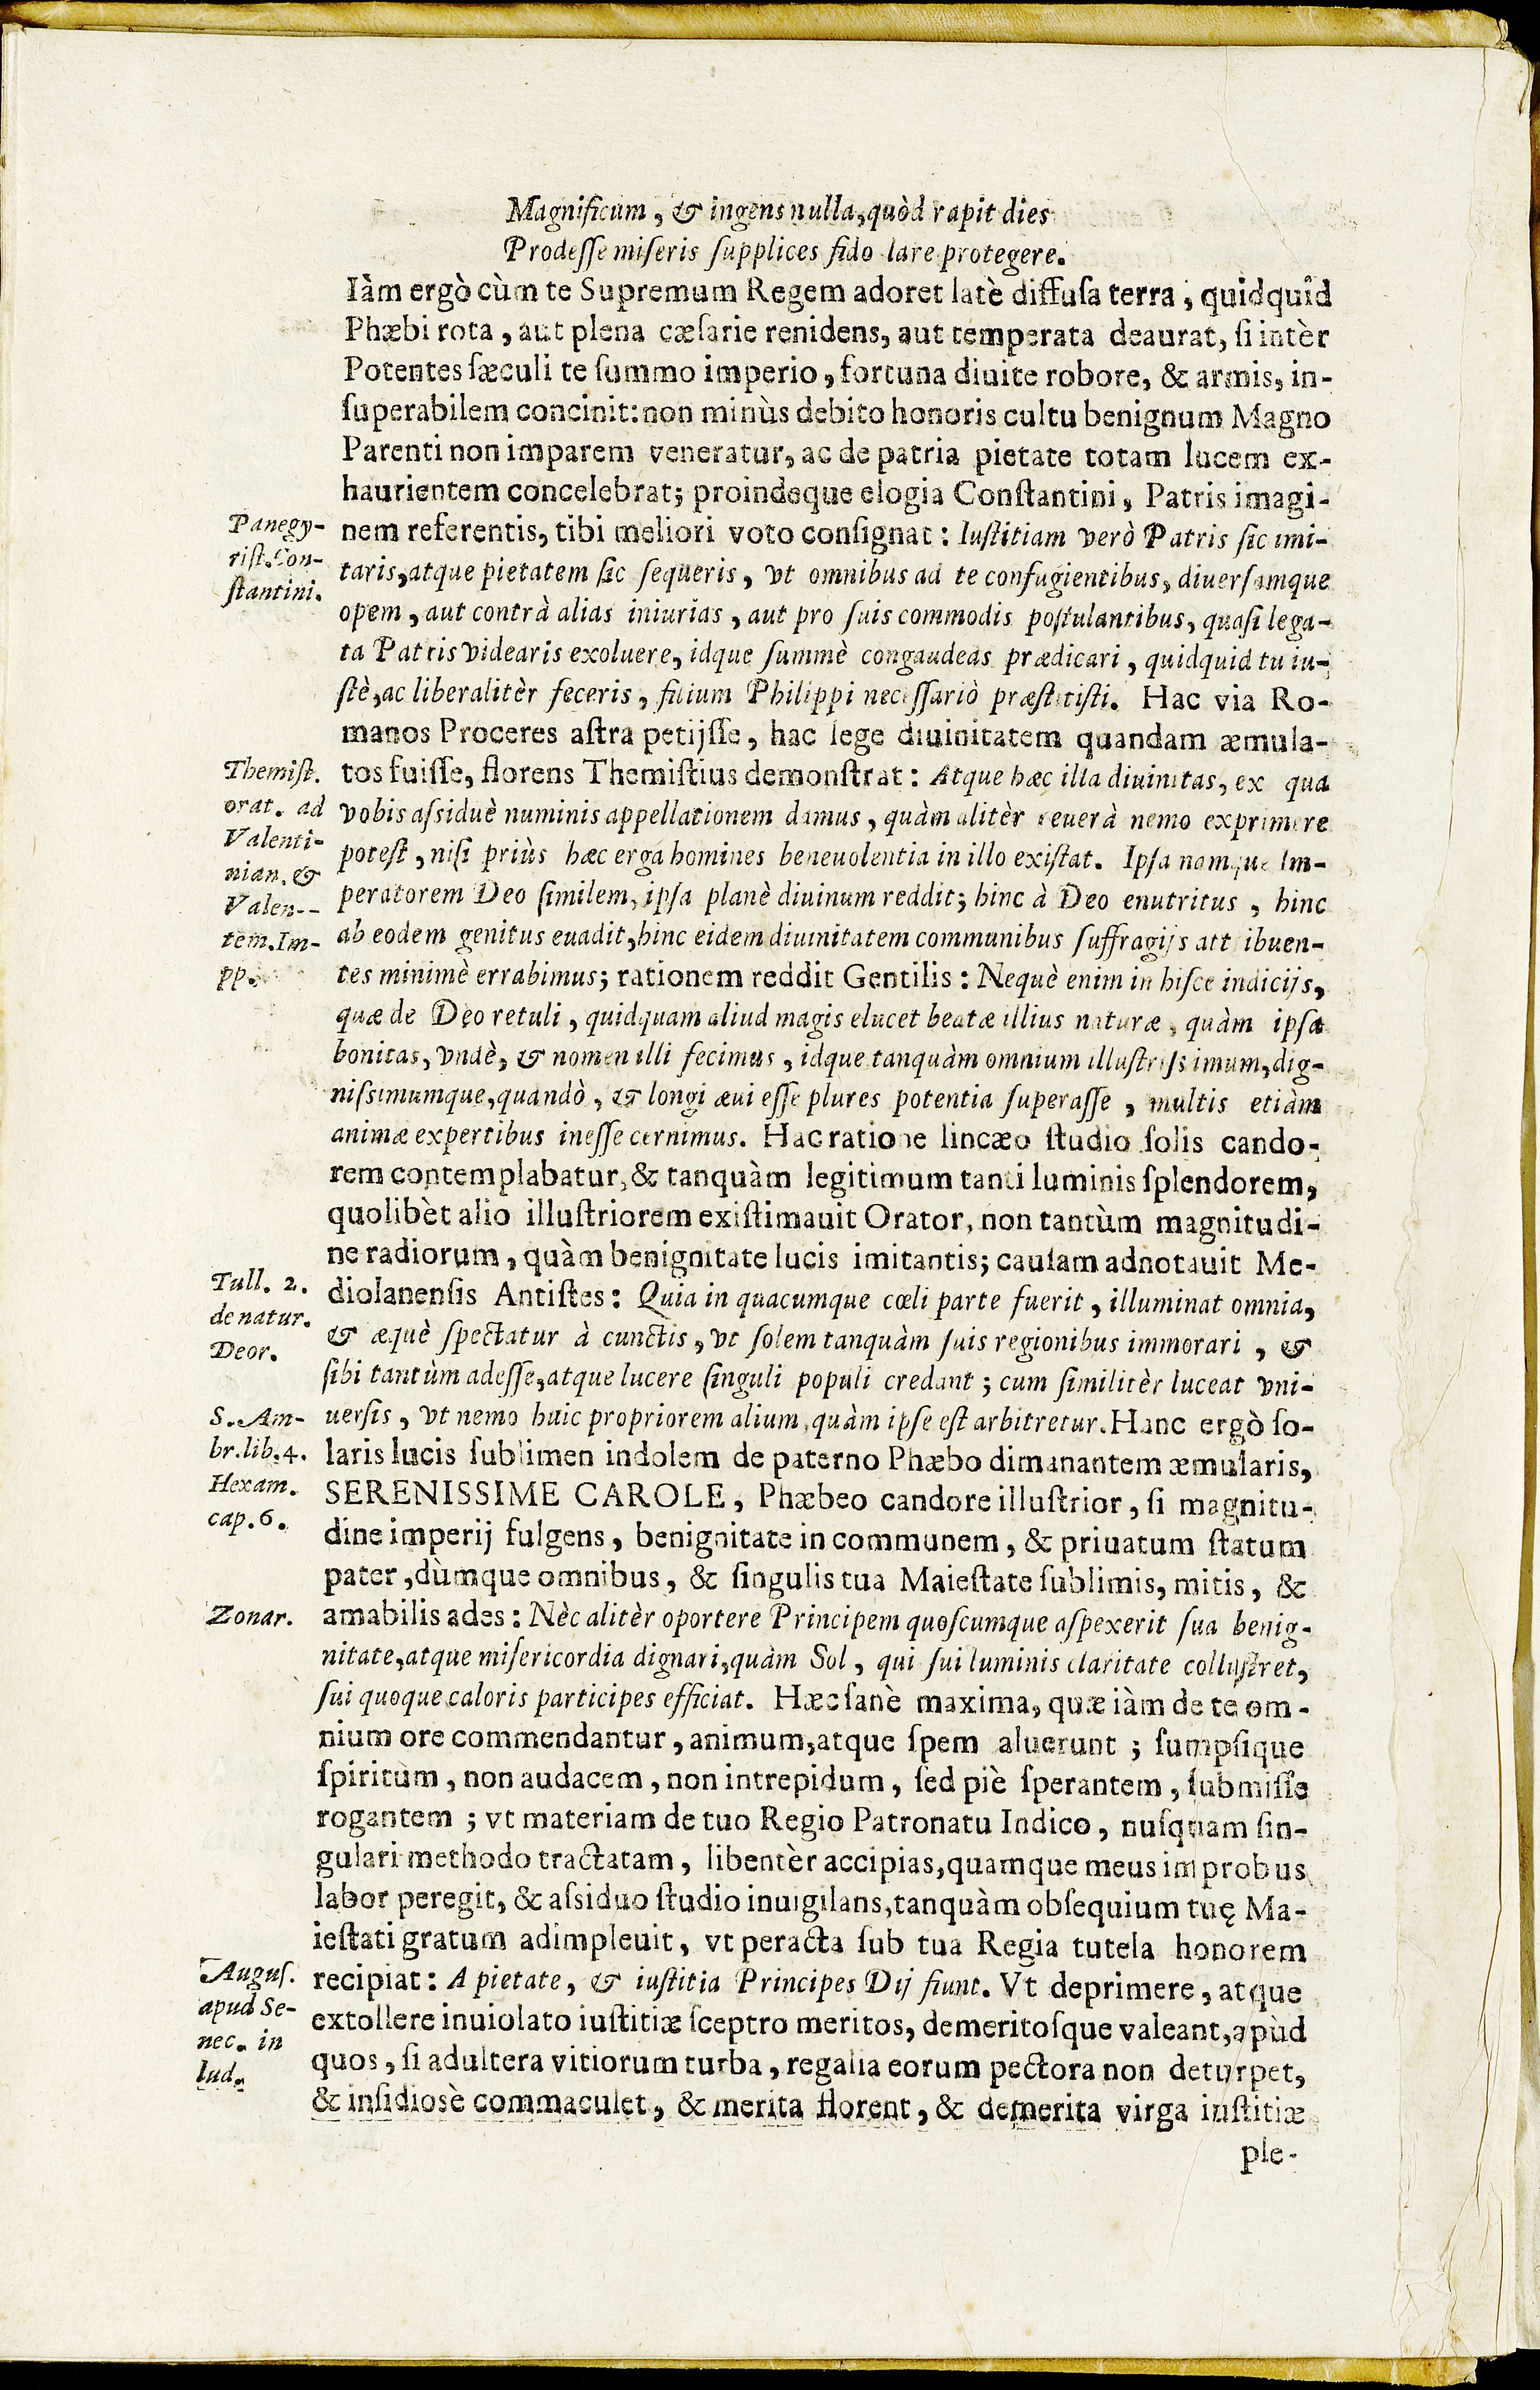 Magnificum, & ingens nulla, quòd rapit dies
Prodeſſe miſeris ſupplices fido lare protegere.
Iàm ergò cùm te Supremum Regem adoret latè diffuſa terra, quidquid
Phæbi rota, aut plena cæſarie renidens, aut temperata deaurat, ſi intèr
Potentes ſæculi te ſummo imperio, fortuna diuite robore, & armis, in-
ſuperabilem concinit: non minùs debito honoris cultu benignum Magno
Parenti non imparem veneratur, ac de patria pietate totam lucem ex-
haurientem concelebrat; proindeque elogia Conſtantini, Patris imagi-
nem referentis, tibi meliori voto conſignat: Iuſtitiam verò Patris ſic imi-
taris, atque pietatem ſic ſequeris, vt omnibus ad te confugientibus, diuerſamque
opem, aut contrà alias iniurias, aut pro ſuis commodis poſtulantibus, quaſi lega-
ta Patris videaris exoluere, idque ſummè congaudeas prædicari, quidquid tu iu-
ſtè, ac liberalitèr feceris, filium Philippi neceſſariò præſtitiſti. Hac via Ro-
manos Proceres aſtra petijſſe, hac lege diuinitatem quandam æmula-
tos fuiſſe, florens Themiſtius demonſtrat: Atque hæc illa diuinitas, ex qua
vobis aſsiduè numinis appellationem damus, quàm alitèr reuerà nemo exprimere
poteſt, niſi priùs hæc erga homines beneuolentia in illo exiſtat. Ipſa namque Im-
peratorem Deo ſimilem, ipſa planè diuinum reddit; hinc à Deo enutritus, hinc
ab eodem genitus euadit, hinc eidem diuinitatem communibus ſuffragijs attribuen-
tes minimè errabimus; rationem reddit Gentilis: Nequè enim in hiſce indicijs,
quæ de Deo retuli, quidquam aliud magis elucet beatæ illius naturæ, quàm ipſa
bonitas, vndè, & nomen illi fecimus, idque tanquàm omnium illuſtriſsimum, dig-
niſsimumque, quandò, & longi æui eſſe plures potentia ſuperaſſe, multis etiàm
animæ expertibus ineſſe cernimus. Hac ratione lincæo ſtudio ſolis cando-
rem contemplabatur, & tanquàm legitimum tanti luminis ſplendorem,
quolibèt alio illuſtriorem exiſtimauit Orator, non tantùm magnitudi-
ne radiorum, quàm benignitate lucis imitantis; cauſam adnotauit Me-
diolanenſis Antiſtes: Quia in quacumque cœli parte fuerit, illuminat omnia,
& æquè ſpectatur à cunctis, vt ſolem tanquàm ſuis regionibus immorari, &
ſibi tantùm adeſſe, atque lucere ſinguli populi credant; cum ſimilitèr luceat vni-
uerſis, vt nemo huic propriorem alium, quàm ipſe eſt arbitretur. Hanc ergò ſo-
laris lucis ſublimen indolem de paterno Phæbo dimanantem æmularis,
SERENISSIME CAROLE, Phæbeo candore illuſtrior, ſi magnitu-
dine imperij fulgens, benignitate in communem, & priuatum ſtatum
pater, dùmque omnibus, & ſingulis tua Maieſtate ſublimis, mitis, &
amabilis ades: Nèc alitèr oportere Principem quoſcumque aſpexerit ſua benig-
nitate, atque miſericordia dignari, quàm Sol, qui ſui luminis claritate colluſtret,
ſui quoque caloris participes efficiat. Hæc ſanè maxima, quæ iàm de te om-
nium ore commendantur, animum, atque ſpem aluerunt; ſumpſique
ſpiritùm, non audacem, non intrepidum, ſed piè ſperantem, ſubmiſſe
rogantem; vt materiam de tuo Regio Patronatu Indico, nuſquam ſin-
gulari methodo tractatam, libentèr accipias, quamque meus improbus
labor peregit, & aſsiduo ſtudio inuigilans, tanquàm obſequium tuę Ma-
ieſtati gratum adimpleuit, vt peracta ſub tua Regia tutela honorem
recipiat: A pietate, & iuſtitia Principes Dij fiunt. Vt deprimere, atque
extollere inuiolato iuſtitiæ ſceptro meritos, demeritoſque valeant, apùd
quos, ſi adultera vitiorum turba, regalia eorum pectora non deturpet,
& inſidiosè commaculet, & merita florent, & demerita virga iuſtitiæ
ple-
Panegy-
riſt. Con-
ſtantini.
Themiſt.
orat. ad
Valenti-
nian. &
Valen--
tem. Im-
pp.
Tull. 2.
de natur.
Deor.
S. Am-
br. lib. 4.
Hexam.
cap. 6.
Zonar.
Auguſ.
apud Se-
nec. in
lud.